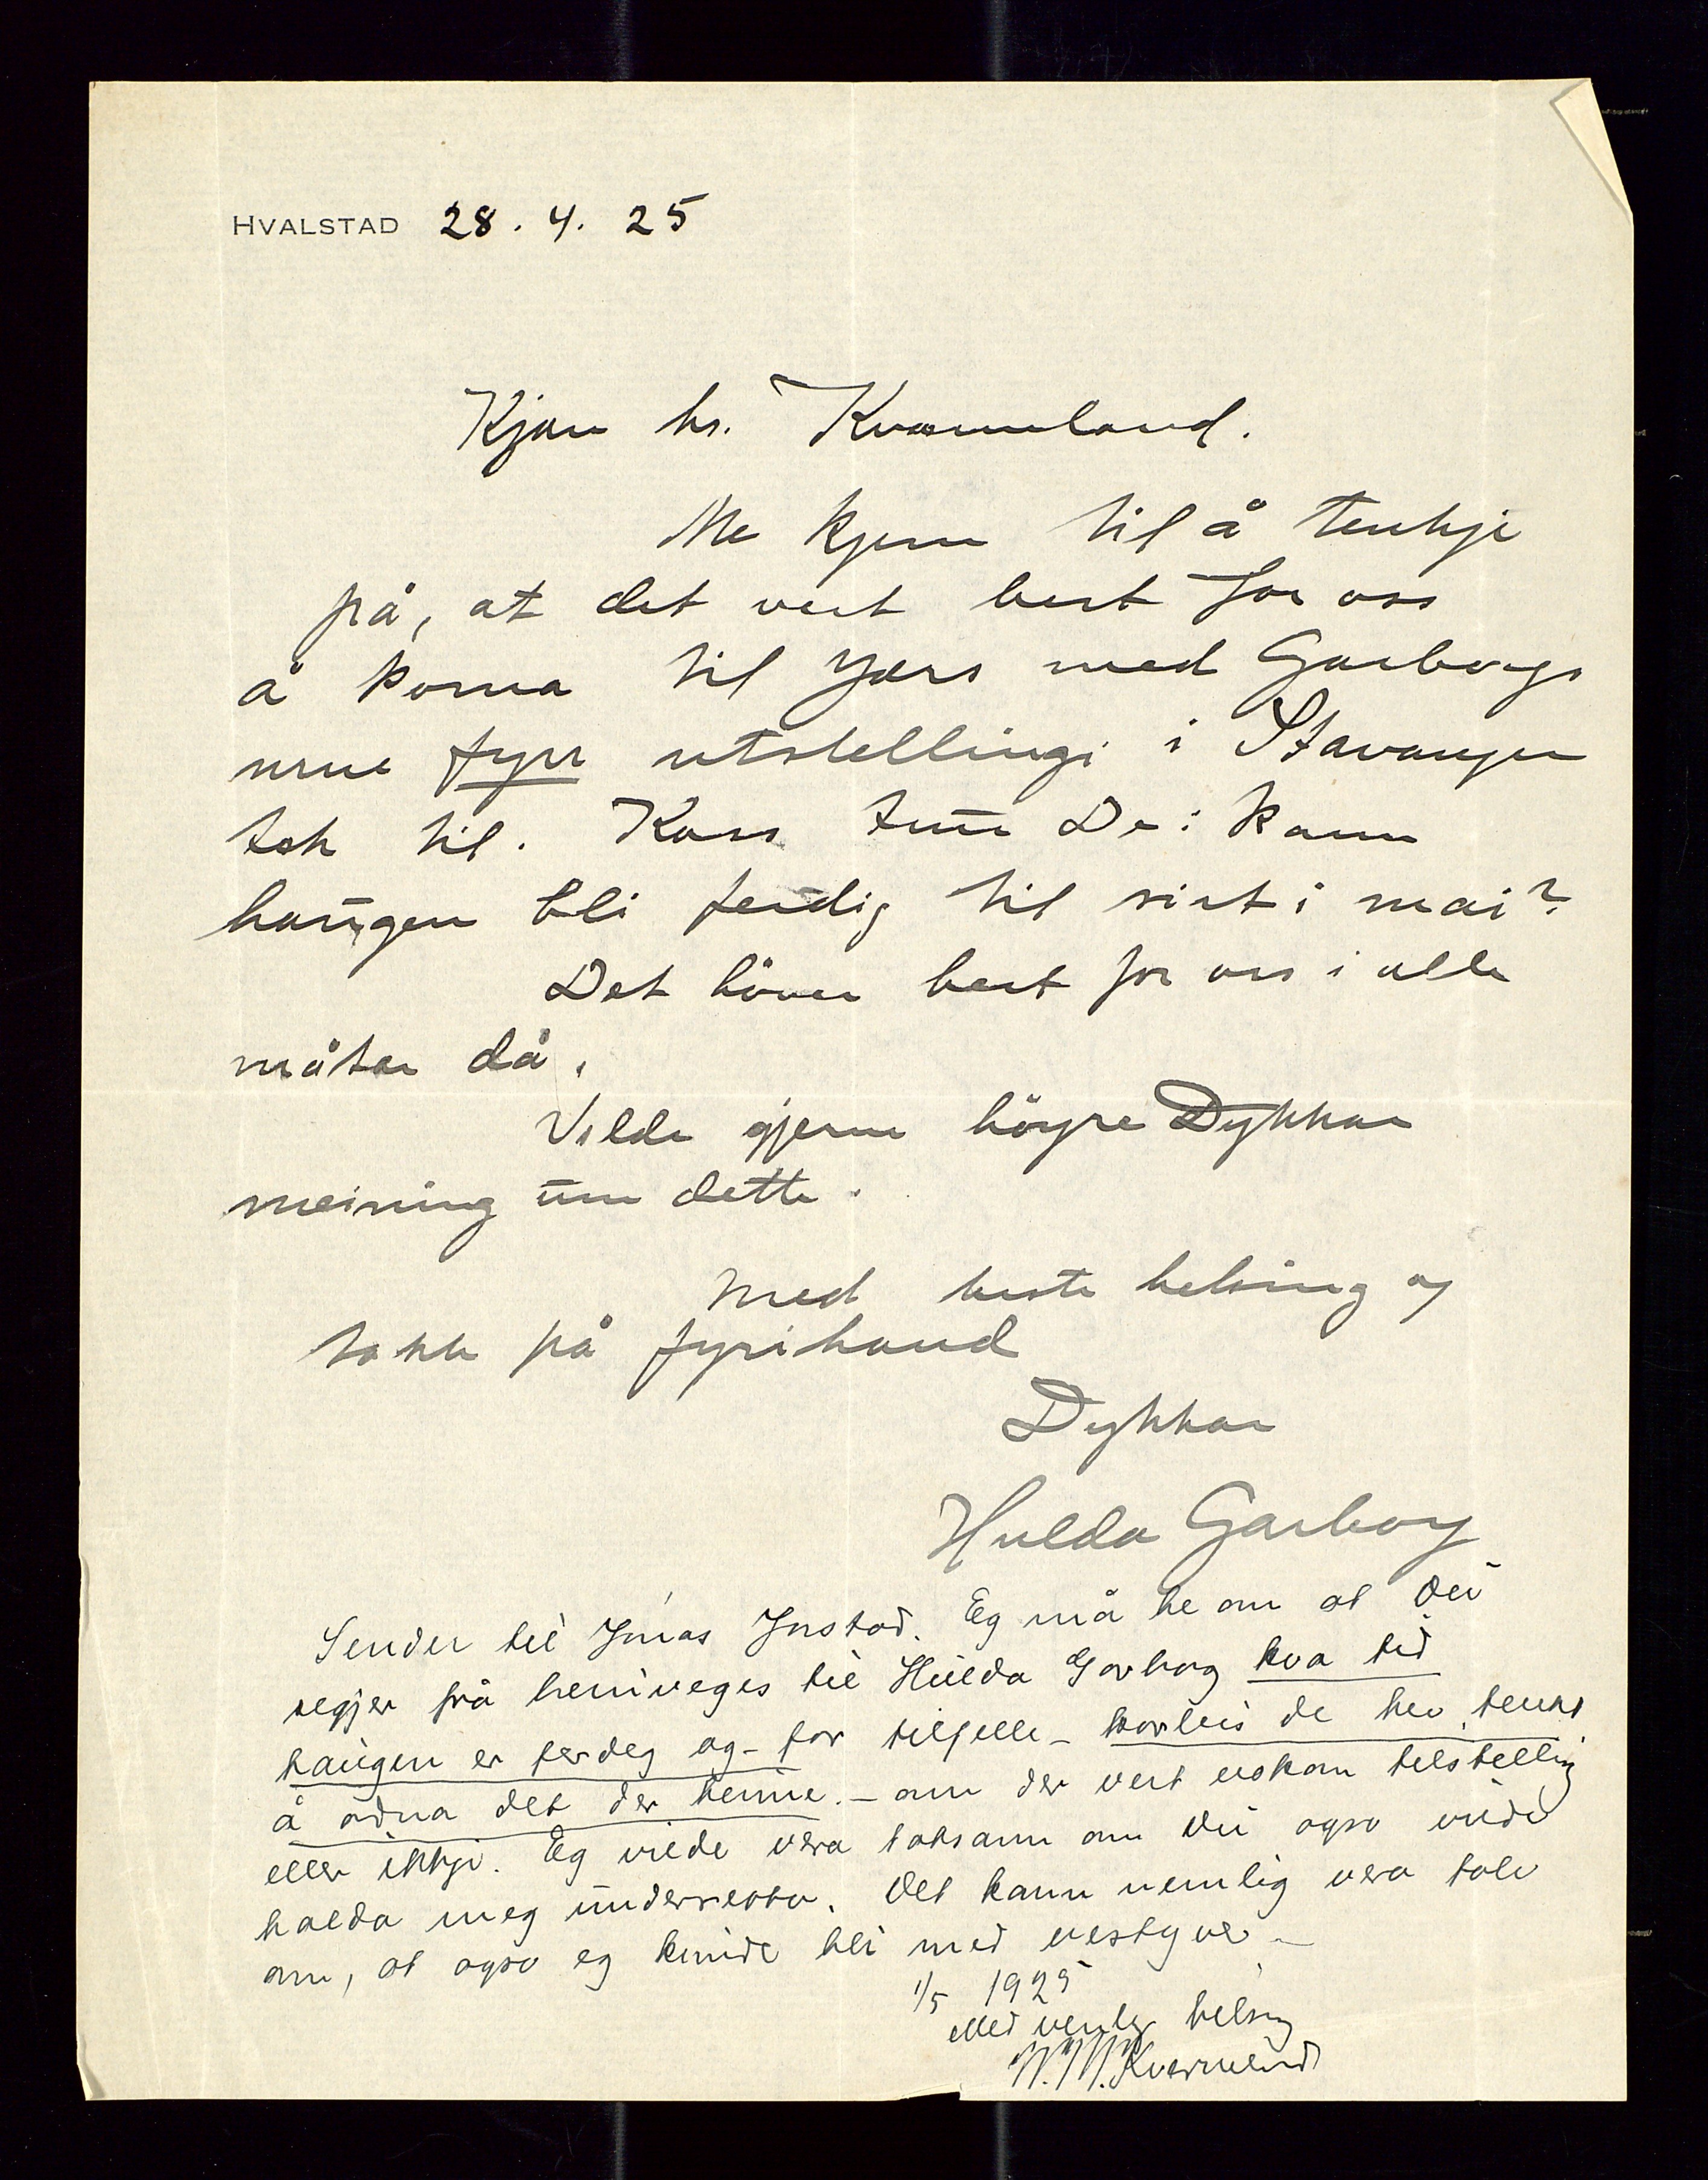 HVALSTAD 28. 4. 25
Kjære hr. Kværneland.
Me kjem til å tenkje
på, at det vert best for oss
å koma til Jærs med Garborgs
urne fyrr utstellingi i Stavanger
tek til. Koss trur De: kann
haugen bli ferdig til sist i mai?
Det höver best for oss i alle
måtar då.
Vilde gjerne höyre Dykkar
meining um dette.
Med beste helsing og
takk på fyrihand
Dykkar
Hulda Garborg
Sender til Jonas Jorstad. Eg må be om at Du
segjer frå beinveges til Hulda Garborg kva tid
haugen er ferdeg og - for tilfelle - korleis de hev tenkt
å ordna det der heime. - om der vert noko tilstelling
eller ikkje. Eg vilde vera taksam om Du også vilde
halda meg underretta. Det kann nemlig vera tale
om, at også eg kunde bli med vestyver. -
1/5 1925
Med venleg helsing
Kverneland